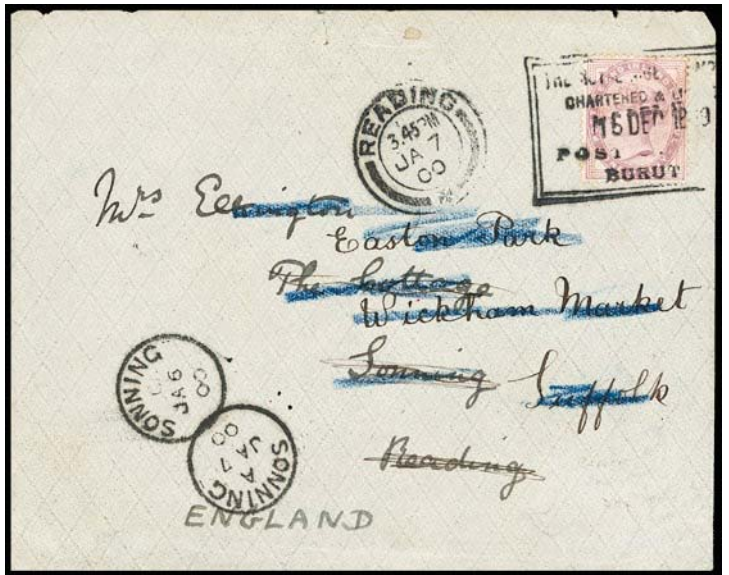 READING
3.45PM
JA 7
00
CHARTERED &
16 DEC 1899
POST
BURUT
Mrs Elkington
Easton Park
The Cottage
Wickham Market
Sonning
Suffolk
Reading
SONNING
JA 6
00
SONNING
A
JA 7
00
ENGLAND